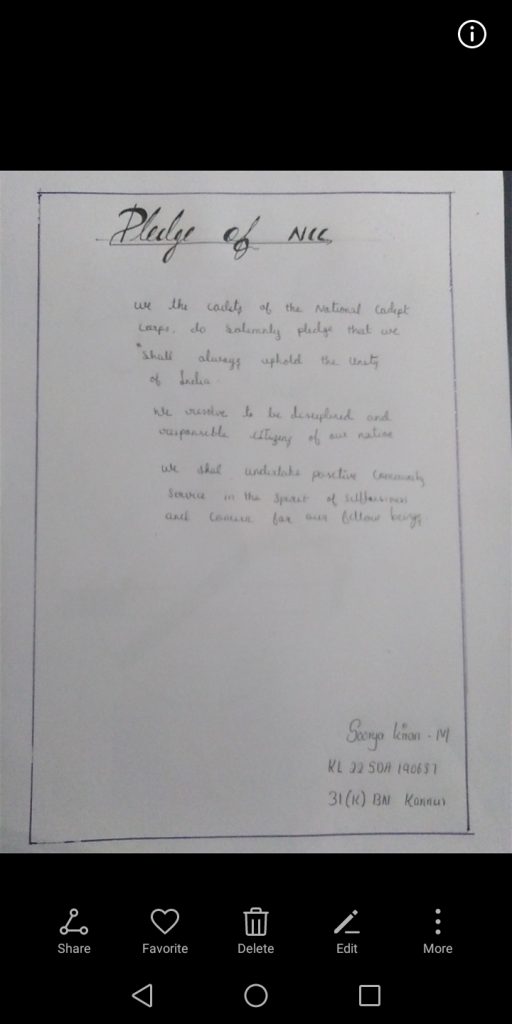 Pledge of NCC
we the cadets of the National Cadept
Corps, do solemnly pledge that we
shall always uphold the Unity
of India.
We resolve to be disciplined and
responsible citizens of our nation
we shall undertake positive community
service in the spirit of selflessness
and concern for our fellow beings
Soorya kiran - M
KL 22 SDA 190657
31(K) BN Kannur
Share
Favorite
Delete
Edit
More